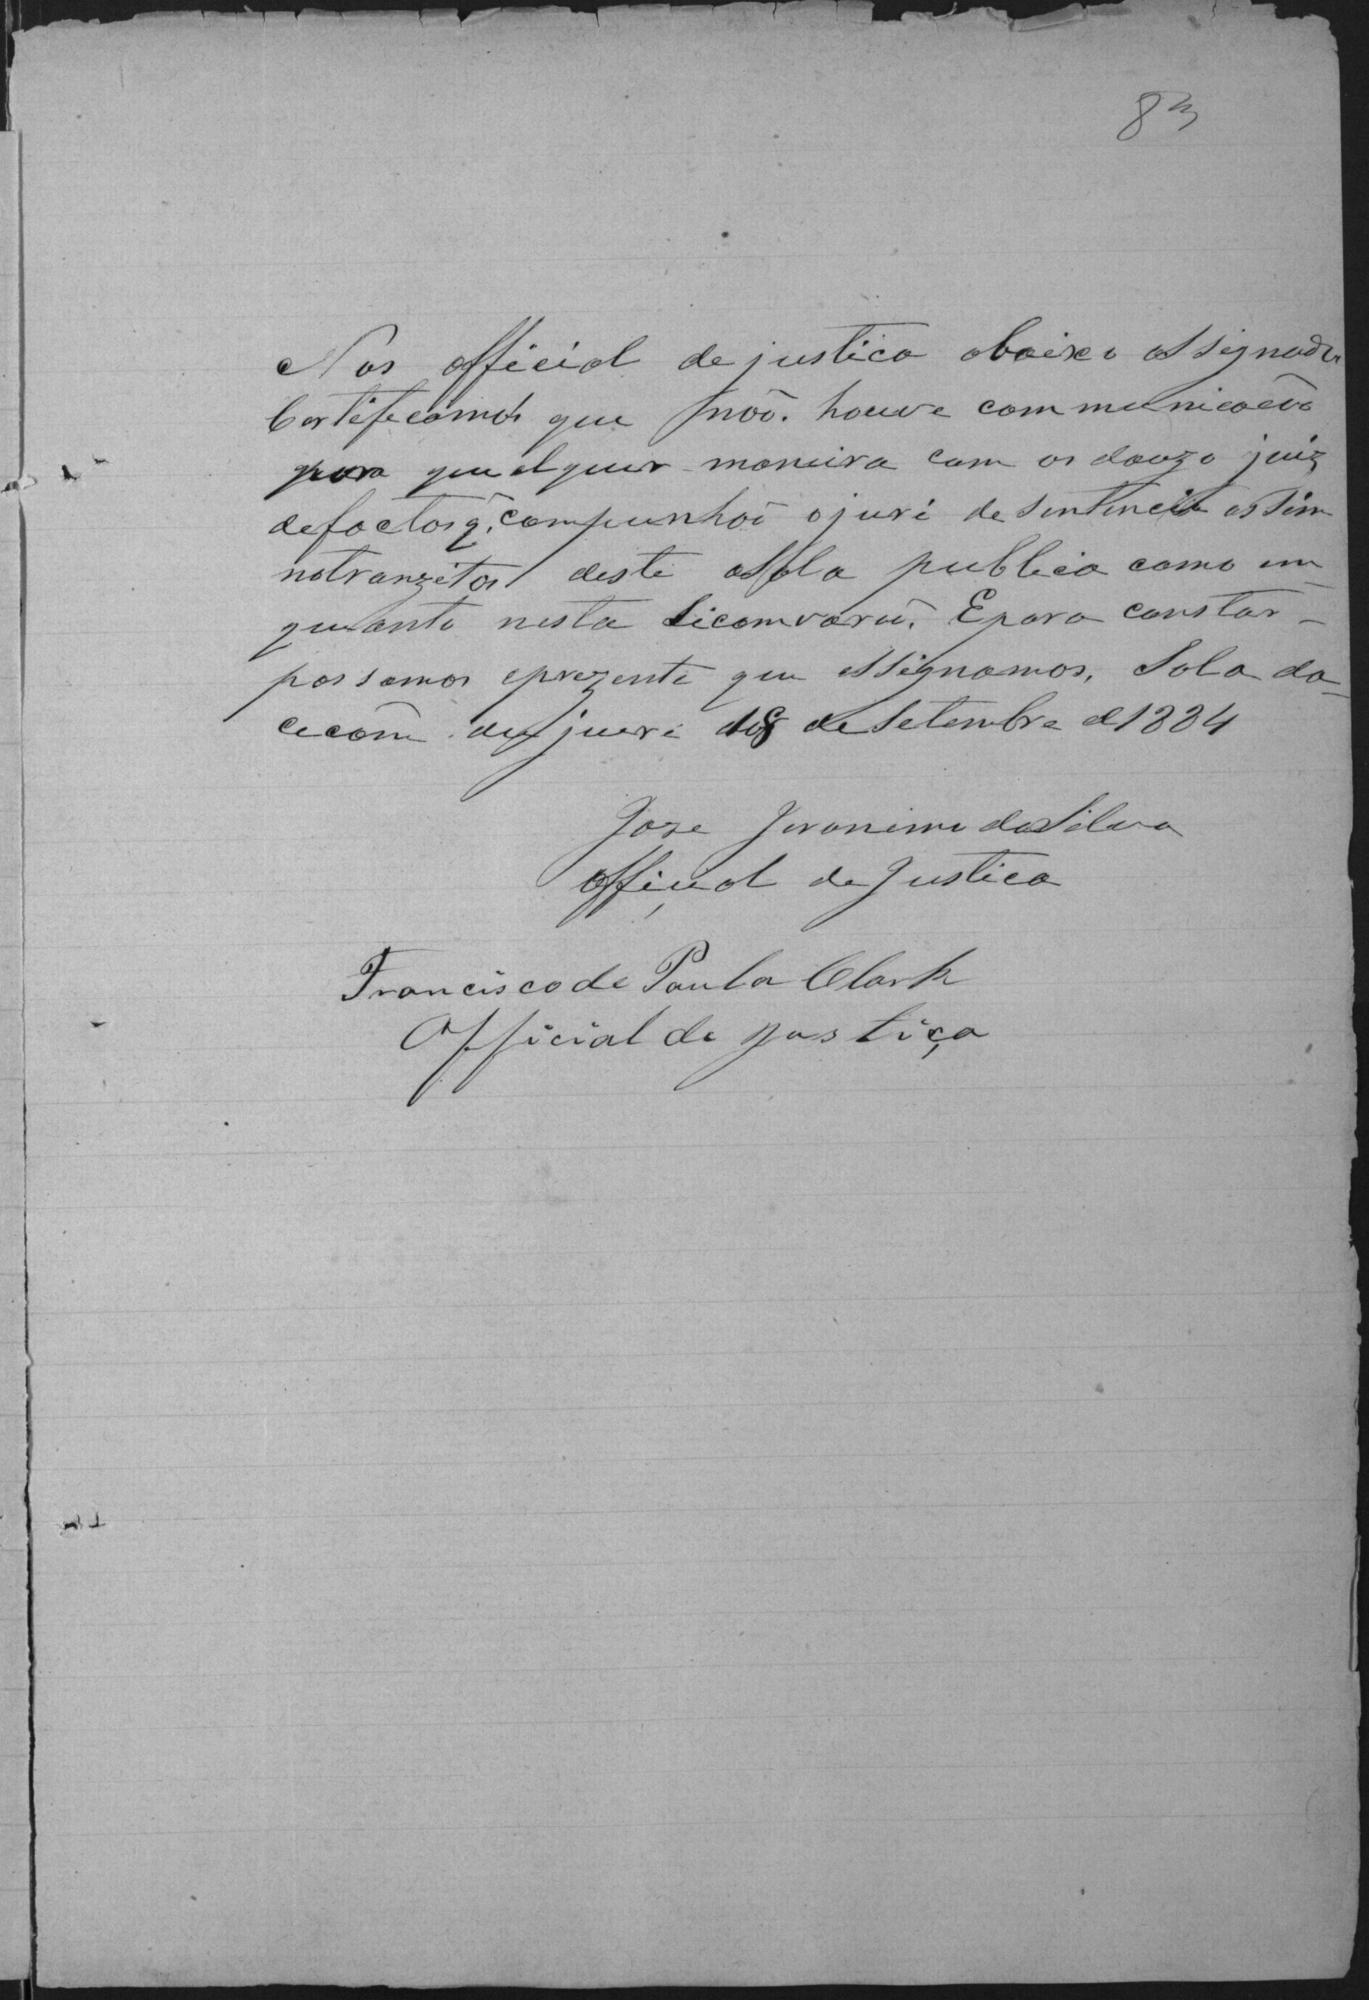 83
Nos official de justica abaixo assignado
Certifecamos que não. houve communicacão
para qualquer maneira com os douze juiz
defactos q. compunhão o juri de sentencia assim
notranzitos deste aSala publica como en
quanto nesta Sicomvarũ. Epara constar
passamos eprezente que assignamos. Sala da
cecom du jure 18 de Setembro d 1884
Joze Jeronimo da Silva
Official de Justica
Francisco de Paula Clark
Official de Justiça